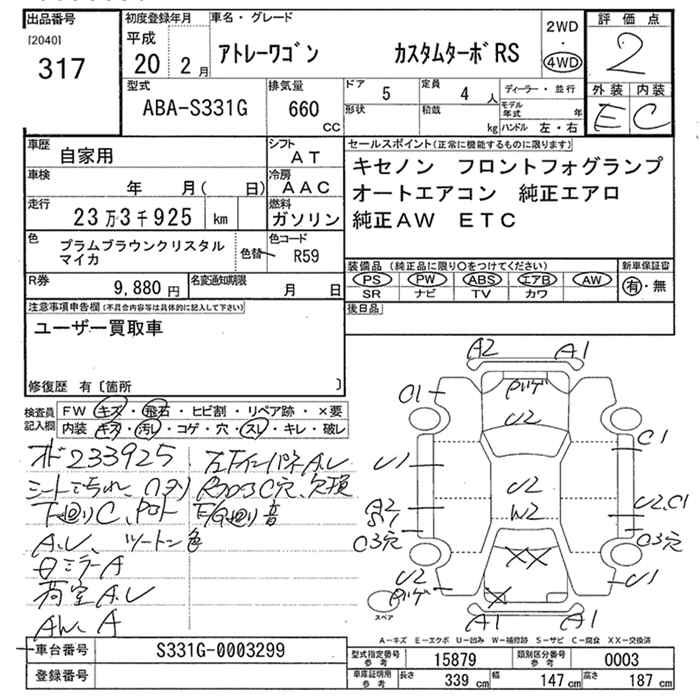 出品番号
[2040]
317
初度登録年月
平成
20 2月
車名・グレード
アトレーワゴン カスタムターボRS
2WD
・
4WD
評価点
2
外装 内装
E C
型式
ABA-S331G
排気量
660
cc
ドア 5
定員 4人
形状
積載 kg
ディーラー・並行
モデル年式 年
ハンドル 左・右
車歴 自家用
シフト AT
車検 年 月( 日)
冷房 AAC
走行 23万3千925 km
燃料 ガソリン
色 プラムブラウンクリスタル
マイカ
色替
色コード R59
R券 9,880円
名変通知期限 月 日
セールスポイント(正常に機能するものに限ります)
キセノン フロントフォグランプ
オートエアコン 純正エアロ
純正AW ETC
装備品(純正品に限り○をつけてください)
PS PW ABS エアB AW
SR ナビ TV カワ
新車保証書
有・無
後日品
注意事項申告欄(不具合内容等は具体的に記入して下さい)
ユーザー買取車
修復歴 有〔箇所 〕
検査員記入欄
FW キズ・飛石・ヒビ割・リペア跡・×要
内装 キズ・汚レ・コゲ・穴・スレ・キレ・破レ
233925
下回りC
A.U ツートン色
ミラーA
荷室A.U
AW A
E/G回り音
A2 A1
C1
U2
C1
U1
U2
W2
A2
U2.C1
C3穴
C3穴
XX
U2
U1
X
A1 A1
スペア
A-キズ E-エクボ U-凹み W-補修跡 S-サビ C-腐食 XX-交換済
車台番号 S331G-0003299
登録番号
型式指定番号 参考 15879
類別区分番号 参考 0003
車庫証明用 参考 長さ 339 cm 幅 147 cm 高さ 187 cm